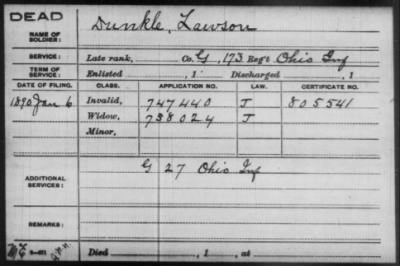 DEAD
NAME OF SOLDIER: Dunkle, Lawson
SERVICE: Late rank, Co. G, 173 Reg't Ohio Inf
TERM OF SERVICE: Enlisted , 1 Discharged , 1
DATE OF FILING. CLASS. APPLICATION NO. LAW. CERTIFICATE NO.
1890 Jan 6 Invalid, 747440 J 805541
Widow, 738024 J
Minor,
ADDITIONAL SERVICES: G 27 Ohio Inf
REMARKS:
Died , 1 , at